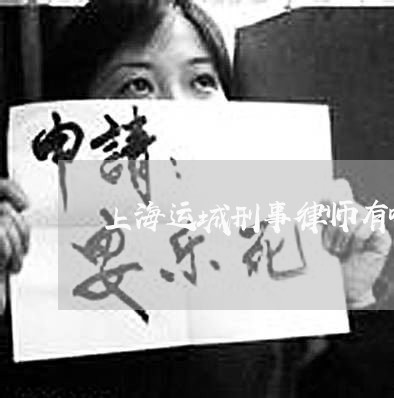 申請：
上海运城刑事律师有
安乐死